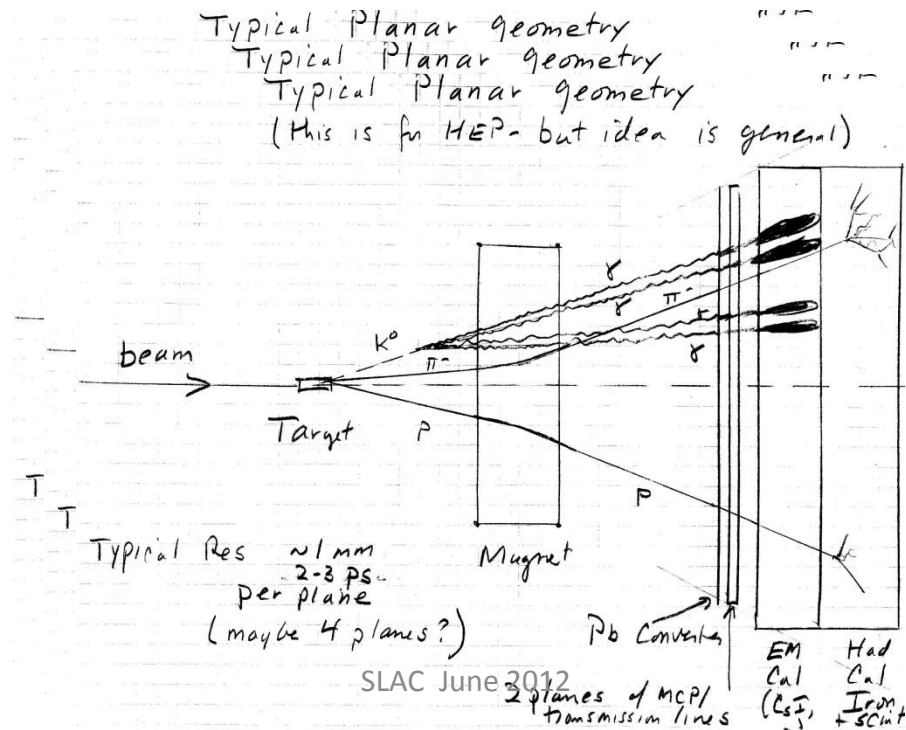 Typical Planar geometry
Typical Planar geometry
Typical Planar geometry
(this is for HEP- but idea is general)
γ
γ
π-
γ
γ
K°
π-
beam
Target
P
P
T
T
Typical Res ~1 mm
2-3 ps
per plane
(maybe 4 planes?)
Magnet
Pb Converter
SLAC June 2012
2 planes of MCP/
transmission lines
EM
Cal
(CsI,
Had
Cal
Iron
+ scint